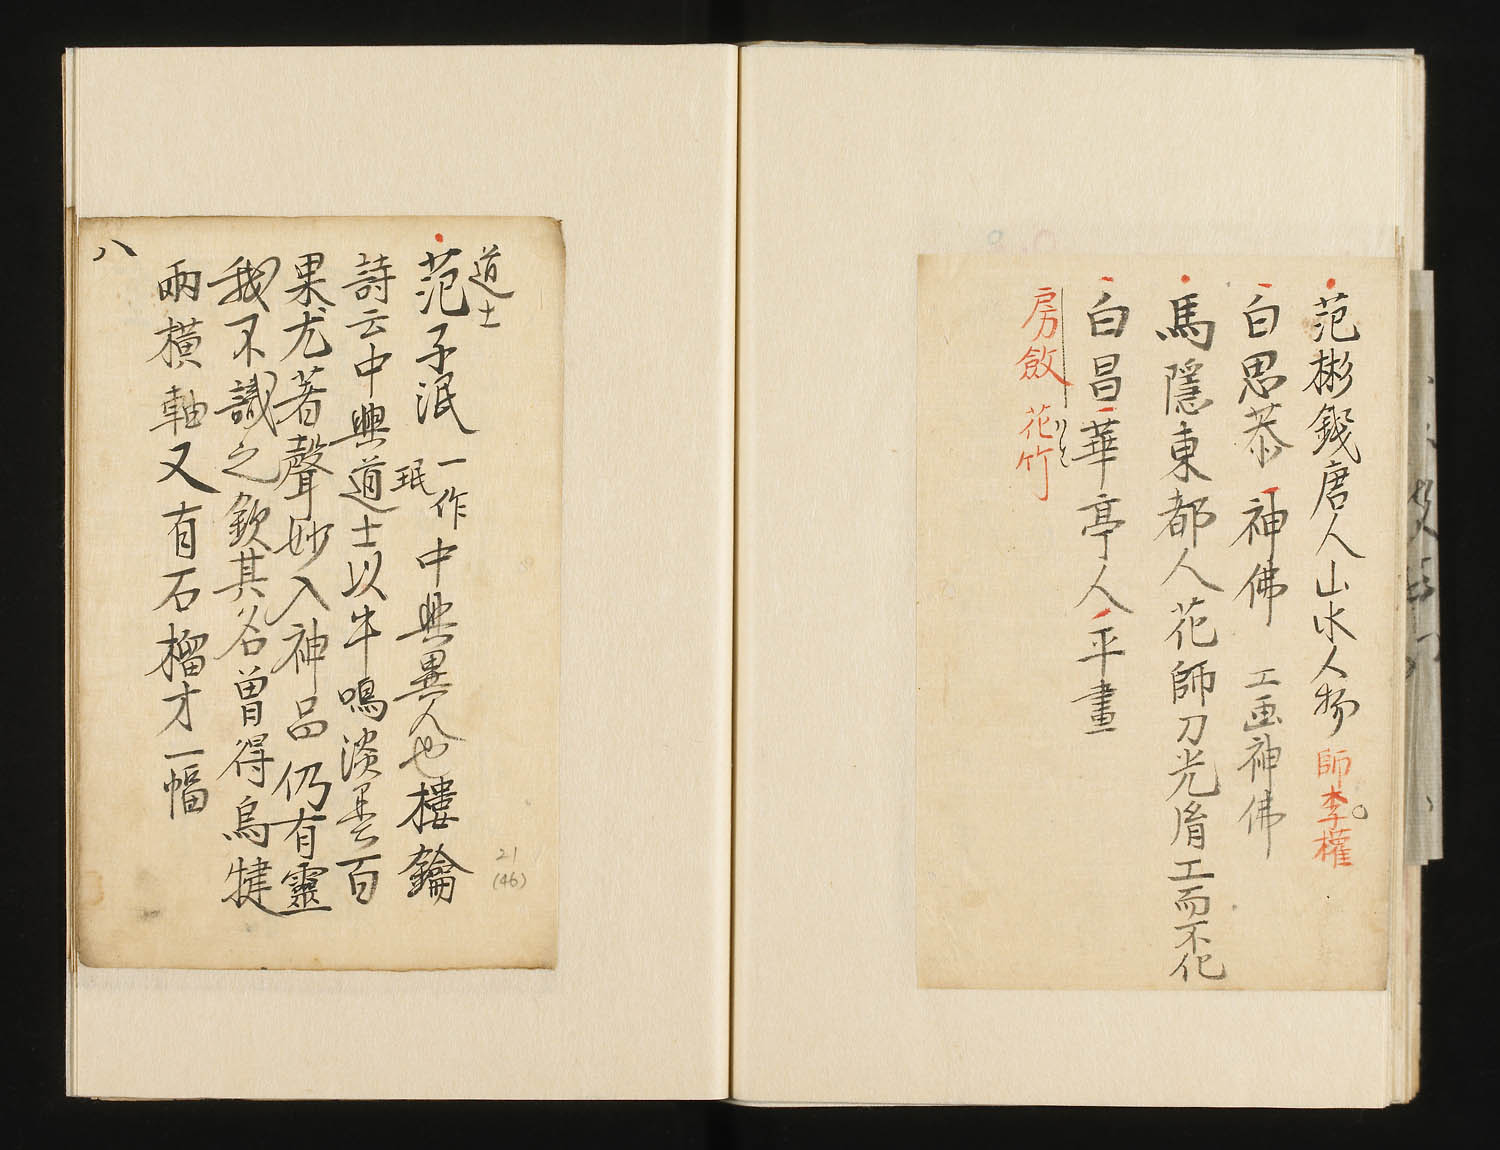 范彬錢唐人山水人物 師李權
白思恭 神佛 工画神佛
馬隱東都人花師刀光胤工而不佀
白昌華亭人平畫
房斂 花竹
道士
范子泯 一作珉 中興異人也樓鑰
詩云中興道士以牛鳴淡墨百
果尤著聲妙入神品仍有靈
我不識之欽其名曽得烏犍
兩橫軸又有石榴才一幅
八
21
(46)